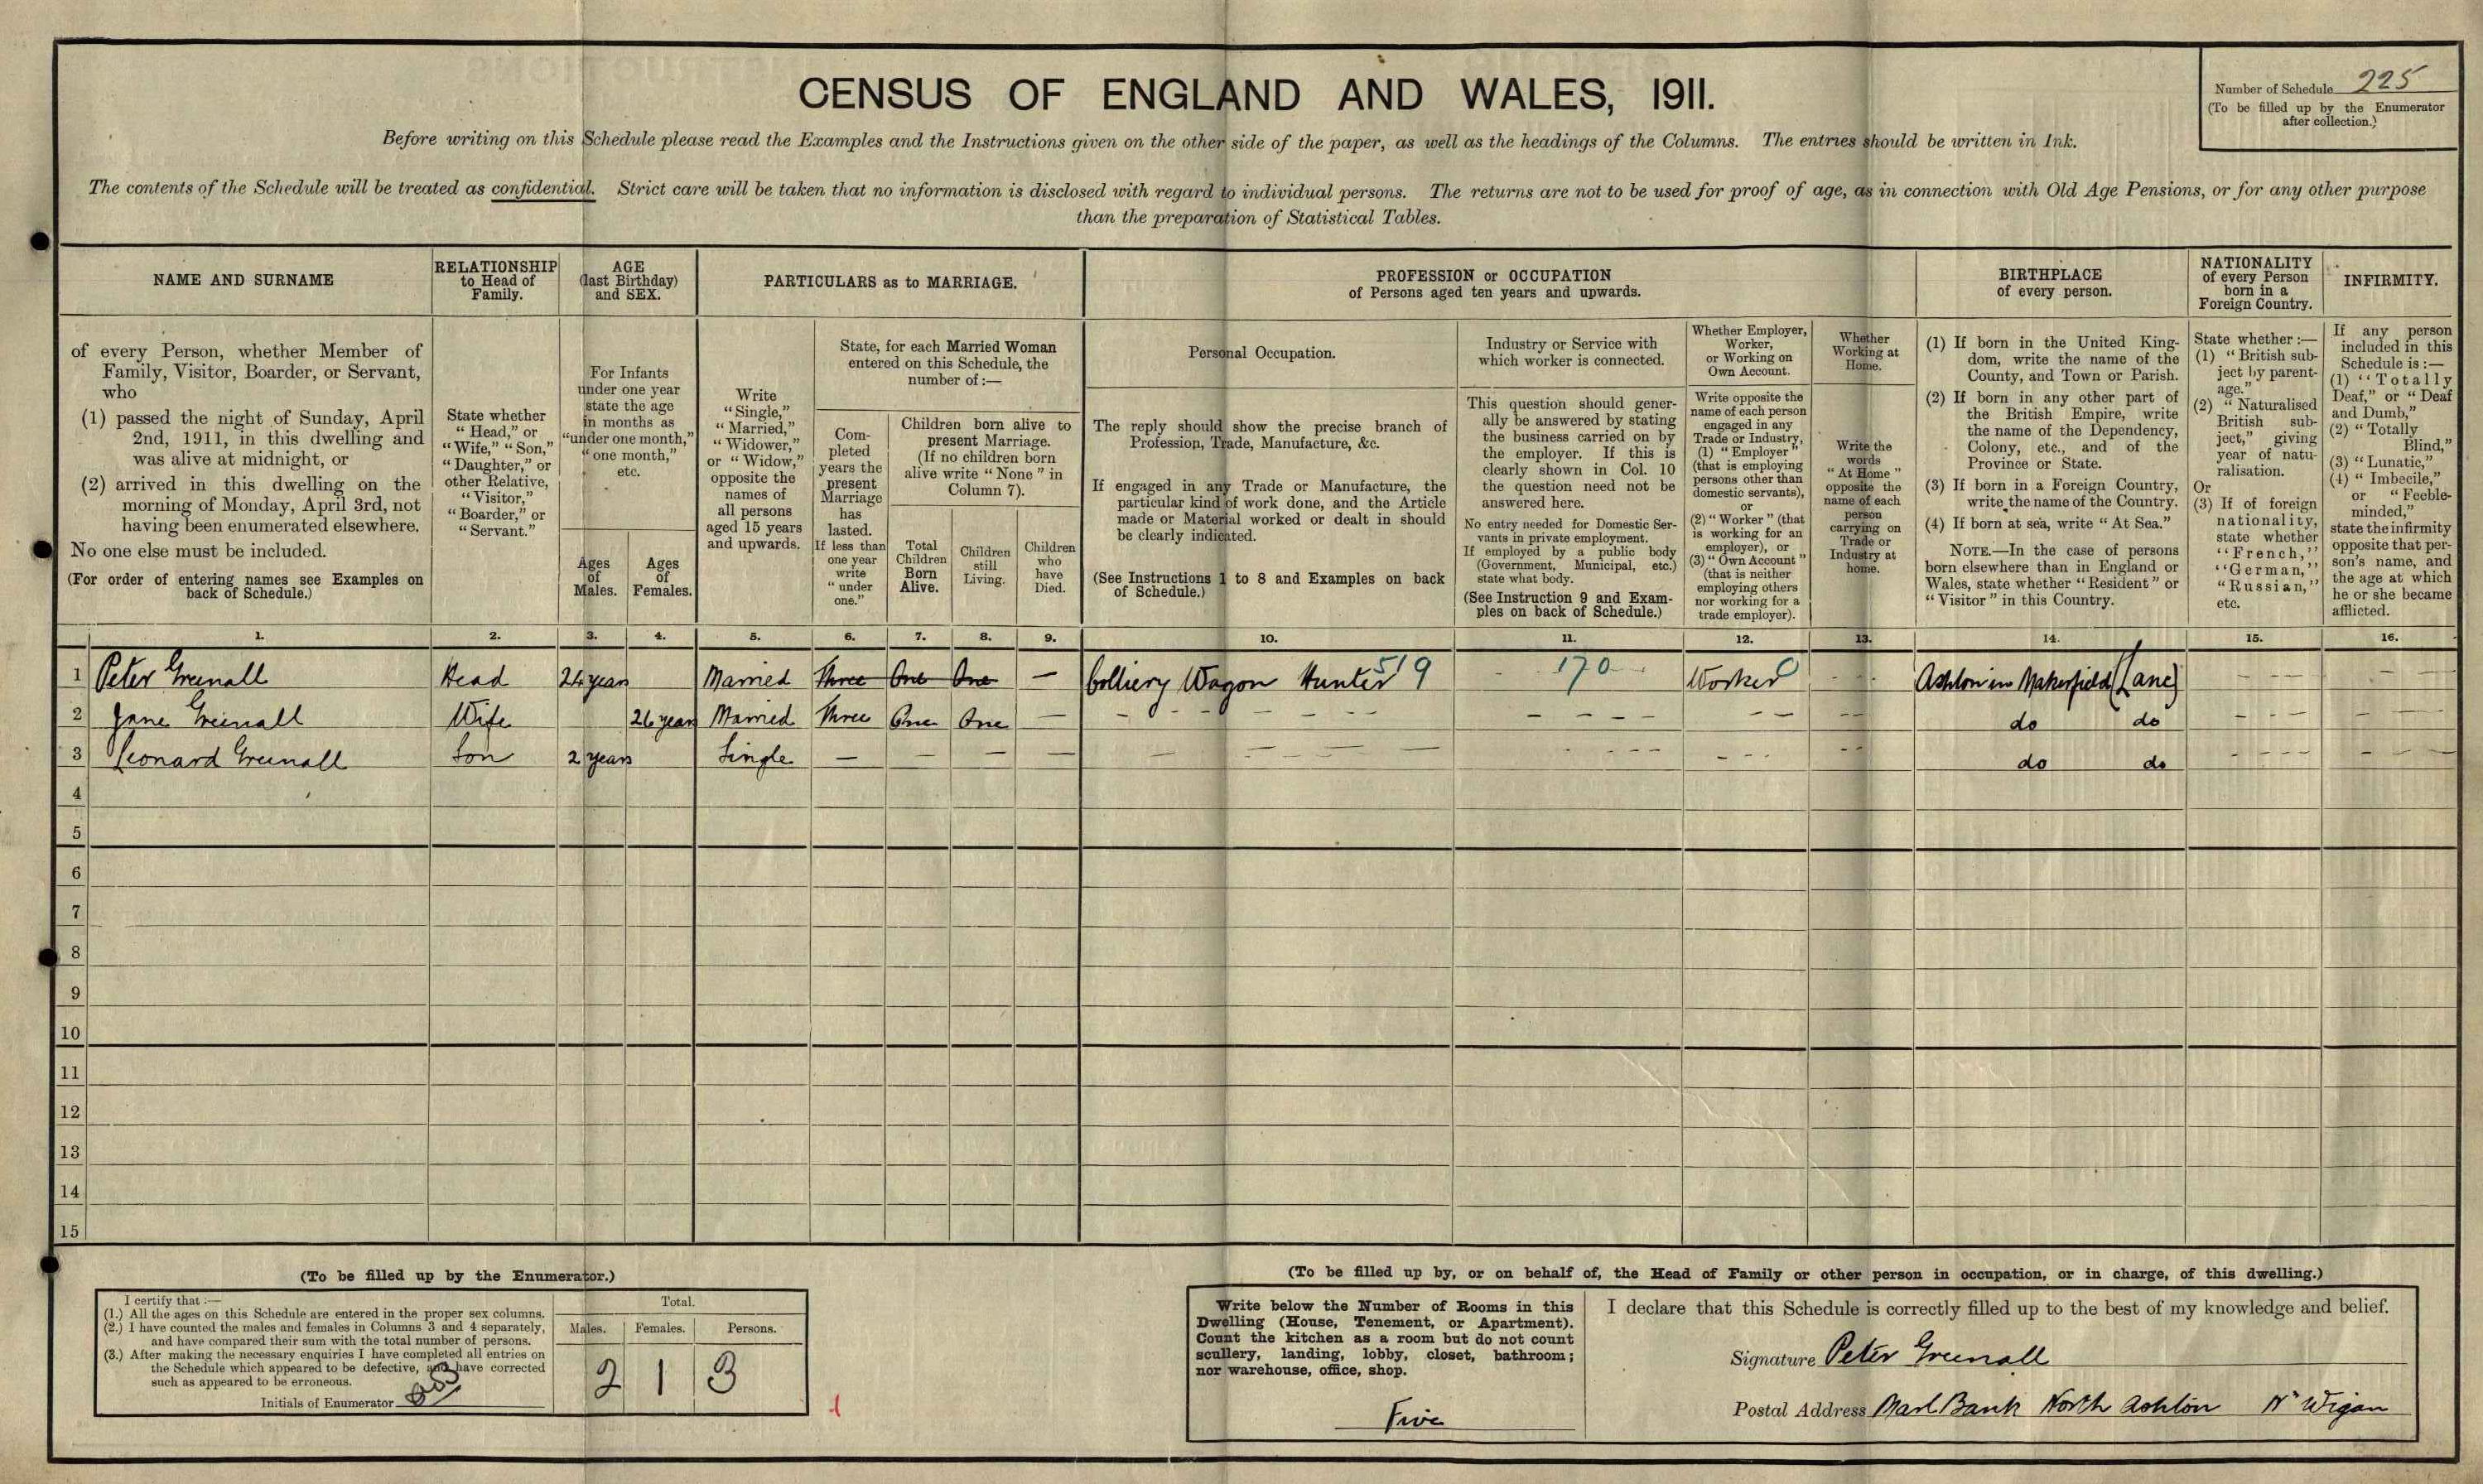 CENSUS OF ENGLAND AND WALES, 1911.
Number of Schedule 225
(To be filled up by the Enumerator
after collection.)
Before writing on this Schedule please read the Examples and the Instructions given on the other side of the paper, as well as the headings of the Columns. The entries should be written in Ink.
The contents of the Schedule will be treated as confidential. Strict care will be taken that no information is disclosed with regard to individual persons. The returns are not to be used for proof of age, as in connection with Old Age Pensions, or for any other purpose
than the preparation of Statistical Tables.
NAME AND SURNAME
of every Person, whether Member of
Family, Visitor, Boarder, or Servant,
who
(1) passed the night of Sunday, April
2nd, 1911, in this dwelling and
was alive at midnight, or
(2) arrived in this dwelling on the
morning of Monday, April 3rd, not
having been enumerated elsewhere.
No one else must be included.
(For order of entering names see Examples on
back of Schedule.)
RELATIONSHIP
to Head of
Family.
State whether
"Head," or
"Wife," "Son,"
"Daughter," or
other Relative,
"Visitor,"
"Boarder," or
"Servant."
AGE
(last Birthday)
and SEX.
For Infants
under one year
state the age
in months as
"under one month,"
"one month,"
etc.
Ages
of
Males.
Ages
of
Females.
PARTICULARS as to MARRIAGE.
Write
"Single,"
"Married,"
"Widower,"
or "Widow,"
opposite the
names of
all persons
aged 15 years
and upwards.
State, for each Married Woman
entered on this Schedule, the
number of:—
Com-
pleted
years the
present
Marriage
has
lasted.
If less than
one year
write
"under
one."
Children born alive to
present Marriage.
(If no children born
alive write "None" in
Column 7).
Total
Children
Born
Alive.
Children
still
Living.
Children
who
have
Died.
PROFESSION or OCCUPATION
of Persons aged ten years and upwards.
Personal Occupation.
The reply should show the precise branch of
Profession, Trade, Manufacture, &c.
If engaged in any Trade or Manufacture, the
particular kind of work done, and the Article
made or Material worked or dealt in should
be clearly indicated.
(See Instructions 1 to 8 and Examples on back
of Schedule.)
Industry or Service with
which worker is connected.
This question should gener-
ally be answered by stating
the business carried on by
the employer. If this is
clearly shown in Col. 10
the question need not be
answered here.
No entry needed for Domestic Ser-
vants in private employment.
If employed by a public body
(Government, Municipal, etc.)
state what body.
(See Instruction 9 and Exam-
ples on back of Schedule.)
Whether Employer,
Worker,
or Working on
Own Account.
Write opposite the
name of each person
engaged in any
Trade or Industry,
(1) "Employer"
(that is employing
persons other than
domestic servants),
or
(2) "Worker" (that
is working for an
employer), or
(3) "Own Account"
(that is neither
employing others
nor working for a
trade employer).
Whether
Working at
Home.
Write the
words
"At Home"
opposite the
name of each
person
carrying on
Trade or
Industry at
home.
BIRTHPLACE
of every person.
(1) If born in the United King-
dom, write the name of the
County, and Town or Parish.
(2) If born in any other part of
the British Empire, write
the name of the Dependency,
Colony, etc., and of the
Province or State.
(3) If born in a Foreign Country,
write the name of the Country.
(4) If born at sea, write "At Sea."
NOTE.—In the case of persons
born elsewhere than in England or
Wales, state whether "Resident" or
"Visitor" in this Country.
NATIONALITY
of every Person
born in a
Foreign Country.
State whether:—
(1) "British sub-
ject by parent-
age."
(2) "Naturalised
British sub-
ject," giving
year of natu-
ralisation.
Or
(3) If of foreign
nationality,
state whether
"French,"
"German,"
"Russian,"
etc.
INFIRMITY.
If any person
included in this
Schedule is:—
(1) "Totally
Deaf," or "Deaf
and Dumb,"
(2) "Totally
Blind,"
(3) "Lunatic,"
(4) "Imbecile,"
or "Feeble-
minded,"
state the infirmity
opposite that per-
son's name, and
the age at which
he or she became
afflicted.
1. 2. 3. 4. 5. 6. 7. 8. 9. 10. 11. 12. 13. 14. 15. 16.
1 Peter Greenall Head 24 years Married Three One One — Colliery Wagon Hunter 519 170 Worker Ashton in Makerfield (Lanc)
2 Jane Greenall Wife 26 years Married Three One One — do do
3 Leonard Greenall Son 2 years Single — — — — do do
4
5
6
7
8
9
10
11
12
13
14
15
(To be filled up by the Enumerator.)
I certify that:—
(1.) All the ages on this Schedule are entered in the proper sex columns.
(2.) I have counted the males and females in Columns 3 and 4 separately,
and have compared their sum with the total number of persons.
(3.) After making the necessary enquiries I have completed all entries on
the Schedule which appeared to be defective, and have corrected
such as appeared to be erroneous.
Initials of Enumerator
Total.
Males. Females. Persons.
2 1 3
(To be filled up by, or on behalf of, the Head of Family or other person in occupation, or in charge, of this dwelling.)
Write below the Number of Rooms in this
Dwelling (House, Tenement, or Apartment).
Count the kitchen as a room but do not count
scullery, landing, lobby, closet, bathroom;
nor warehouse, office, shop.
Five
I declare that this Schedule is correctly filled up to the best of my knowledge and belief.
Signature Peter Greenall
Postal Address Marl Bank North Ashton Nr Wigan